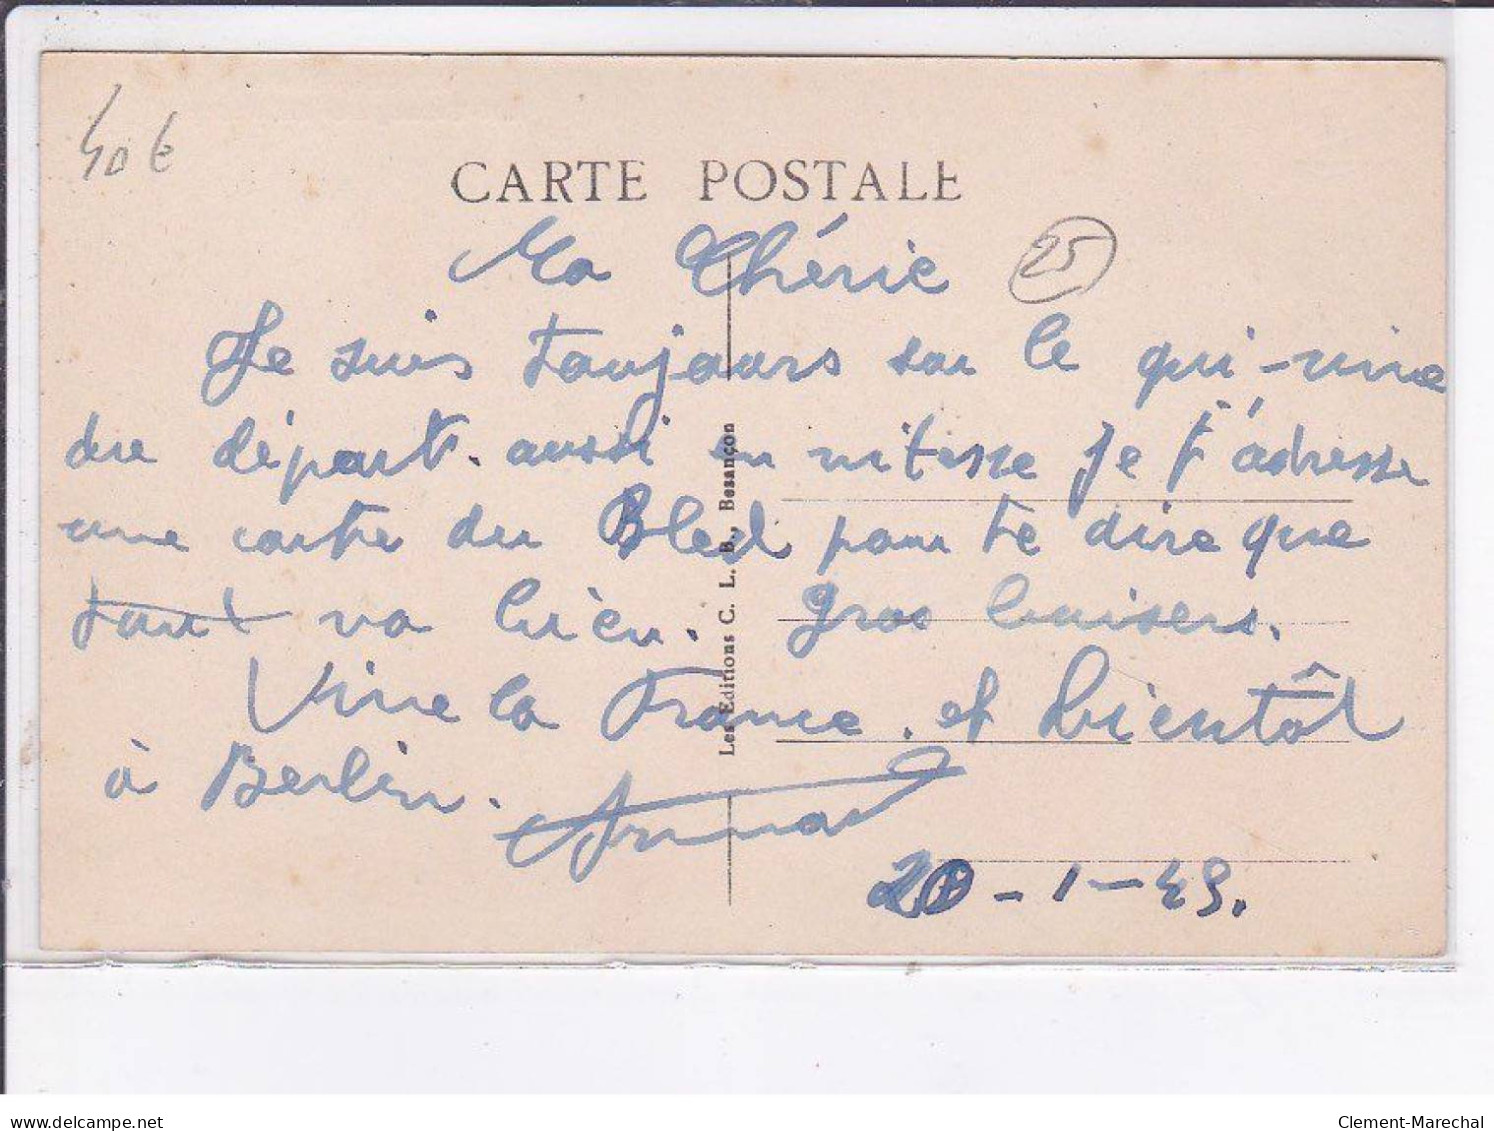 40 €
CARTE POSTALE
Ma Chérie
25
Je suis toujours sur le qui-vive
du départ. aussi en vitesse je t'adresse
une carte du Bled pour te dire que
tout va bien. Gros baisers.
Vive la France. et bientôt
à Berlin.
20-1-45.
Les Editions C. L. B., Besançon
delcampe.net
Clement-Marechal